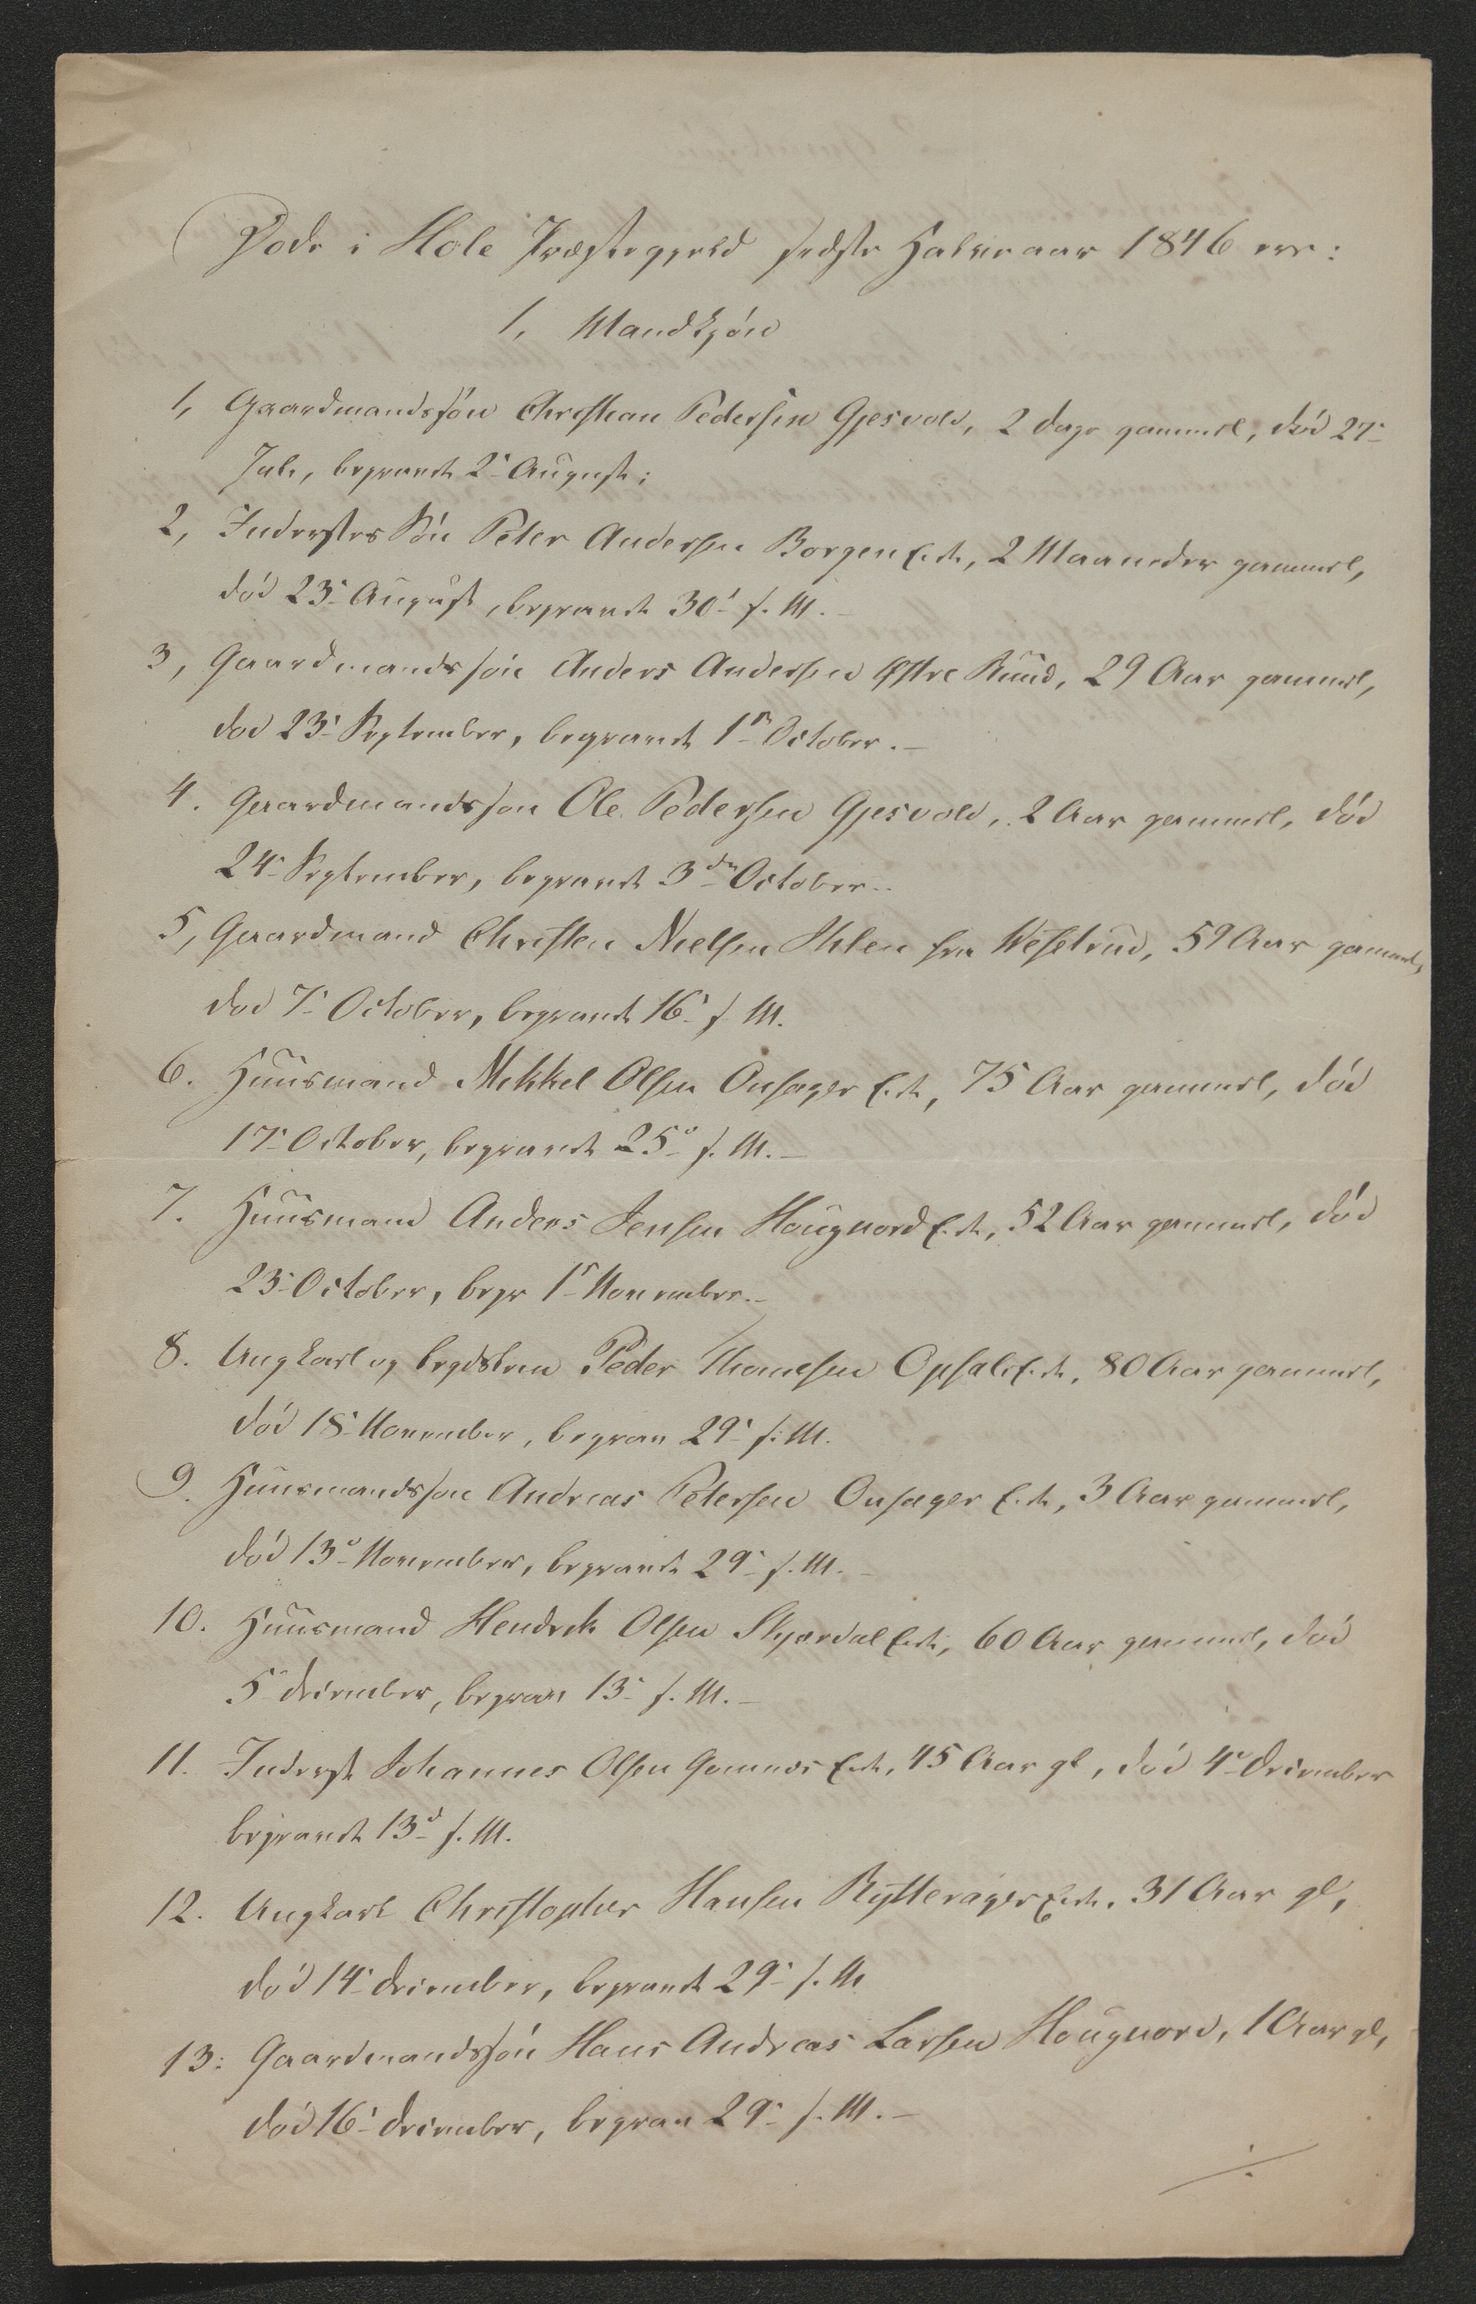 Døde i Hole Præstegjeld sidste Halvaar 1846 ere:
1, Mandkjøn
1, Gaardmandssøn Christian Pedersen Gjesvold, 2 Dage gammel, død 27-
Juli, begravet 2- August;
2, Inderstes Søn Peter Andersen Borgen Eie, 2 Maaneder gammel,
død 23- August, begravet 30- s. M. -
3, Gaardmandssøn Anders Andersen Østre Ruud, 29 Aar gammel,
død 23- September, begravet 1ste October. -
4. Gaardmandssøn Ole Pedersen Gjesvold, 2 Aar gammel, død
24- September, begravet 3die October. -
5, Gaardmand Christen Nielsen Ihlen fra Weselrud, 59 Aar gammel,
død 7- October, begravet 16- s. M.
6. Huusmand Mikkel Olsen Onsager Eie, 75 Aar gammel, død
17- October, begravet 25- s. M. -
7. Huusmand Anders Jensen Hougnord Eie, 52 Aar gammel, død
23- October, begr 1ste November. -
8. Ungkarl og Peder Thomesen Opsal Eie, 80 Aar gammel,
død 18- November, begrav 29- s. M.
9. Huusmandssøn Andreas Petersen Onsager Eie, 3 Aar gammel,
død 13- November, begravet 29- s. M. -
10. Huusmand Hendrik Olsen Skjærdal Eie, 60 Aar gammel, død
5- December, begrav 13- s. M. -
11. Inderst Johannes Olsen Gomnæs Eie, 45 Aar gl, død 4- December
begravet 13- s. M.
12. Ungkarl Christopher Hansen Rytterager Eie, 31 Aar gl,
død 14- December, begravet 29- s. M
13: Gaardmandssøn Hans Andreas Larsen Hougnord, 1 Aar gl,
død 16- December, begrav 29- s. M. -